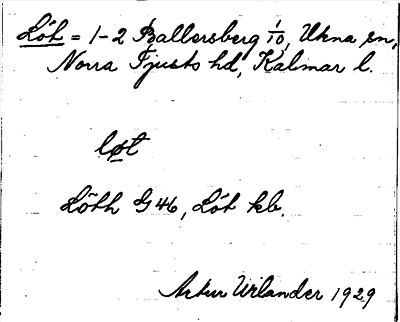 Löt = 1-2 Ballersberg 1/10, Ukna sn,
Norra Tjusts hd, Kalmar l.
løt
Löth G 46, Löt kb.
Artur Wilander 1929